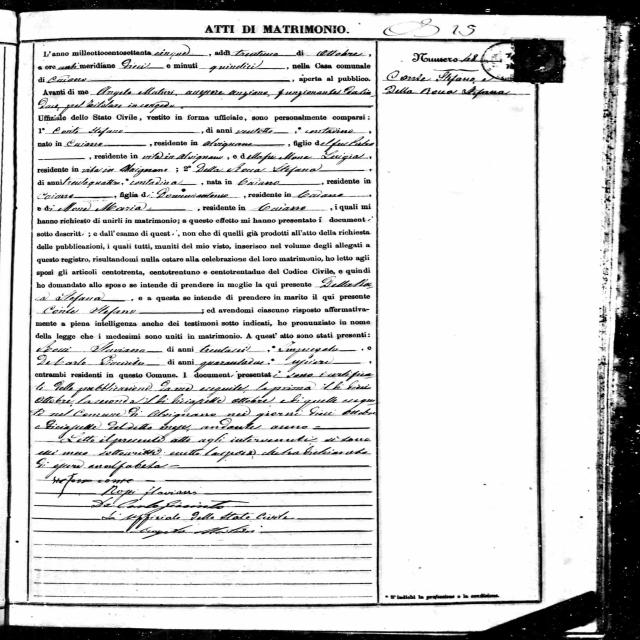 ATTI DI MATRIMONIO.
25
L'anno milleottocentosettanta cinque, addì trentuno di Ottobre,
a ore anti meridiane dieci e minuti quindici, nella Casa comunale
di Caiazzo, aperta al pubblico.
Avanti di me Angelo
Uffiziale dello Stato Civile, vestito in forma uffiziale, sono personalmente comparsi:
1° Conte Stefano, di anni ventotto, * contadino,
nato in Caiazzo, residente in Alvignano, figlio del fu
, residente in vita in Alvignano, e della fu Mone Luigia,
residente in vita in Alvignano; 2° Della Rocca Stefana
di anni trentaquattro, * contadina, nata in Caiazzo, residente in
Caiazzo, figlia di Domenicantonio, residente in Caiazzo
e di Mone Maria, residente in Caiazzo, i quali mi
hanno richiesto di unirli in matrimonio; a questo effetto mi hanno presentato i document
sotto descritt; e dall'esame di quest, non che di quelli già prodotti all'atto della richiesta
delle pubblicazioni, i quali tutti, muniti del mio visto, inserisco nel volume degli allegati a
questo registro, risultandomi nulla ostare alla celebrazione del loro matrimonio, ho letto agli
sposi gli articoli centotrenta, centotrentuno e centotrentadue del Codice Civile, e quindi
ho domandato allo sposo se intende di prendere in moglie la qui presente Della Roc
a Stefana, e a questa se intende di prendere in marito il qui presente
Conte Stefano; ed avendomi ciascuno risposto affermativa-
mente a piena intelligenza anche dei testimoni sotto indicati, ho pronunziato in nome
della legge che i medesimi sono uniti in matrimonio. A quest'atto sono stati presenti:
Flaviano di anni trentasei, * impiegato, e
De Carlo di anni quarantadue, * usciere,
entrambi residenti in questo Comune. I document presentat i sono i certifica
ti delle pubblicazioni da me eseguite, la prima il dì dieci
Ottobre, la seconda il dì diciassette ottobre, e di quelle esegui
te nel Comune di Alvignano nei giorni dieci
e diciassette del detto mese, andante anno
Letto il presente atto agli intervenuti si sono
meno la sposa
di essere analfabeta
conte
Flaviano
De Carlo
Lo Uffiziale dello Stato Civile
Angelo
Numero 48
Conte Stefano e
Della Rocca Stefana
* S'indichi la professione o la condizione.